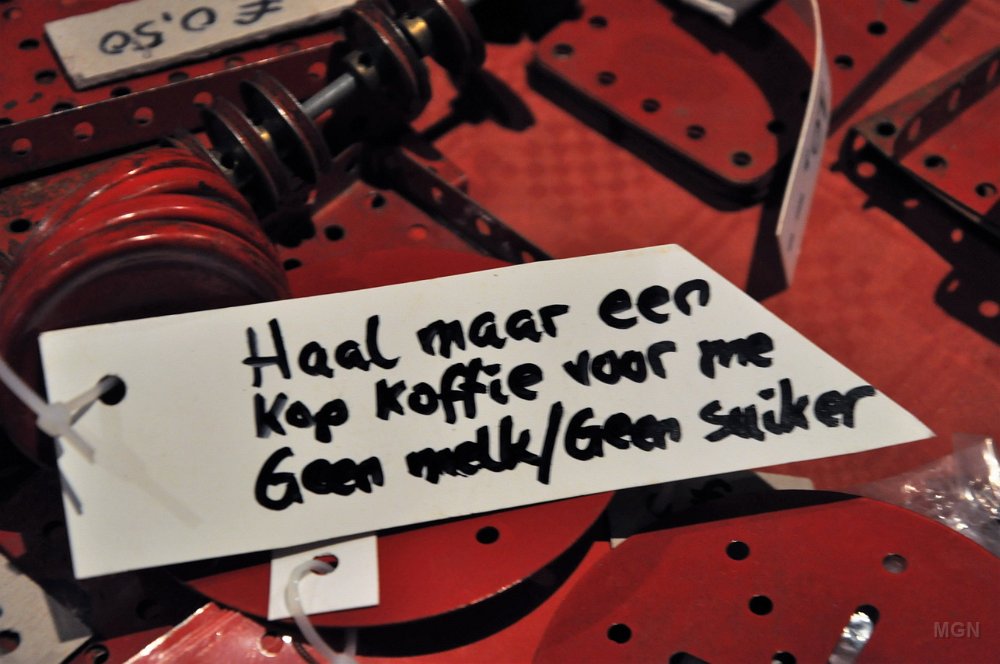 € 0,50
Haal maar een
kop koffie voor me
Geen melk/Geen suiker
MGN